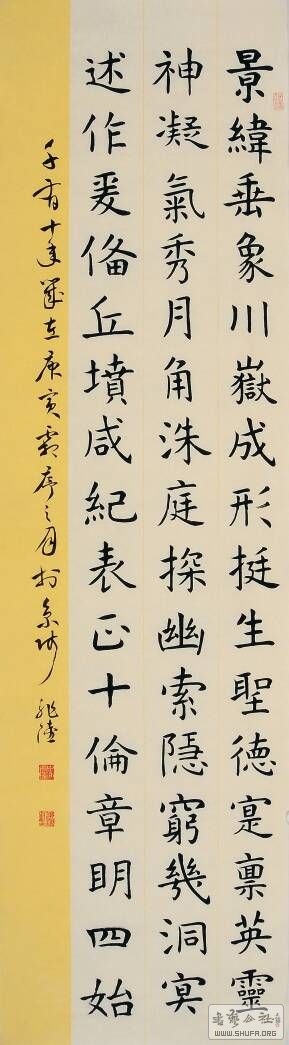 景緯垂象川嶽成形挺生聖德寔稟英靈
神凝氣秀月角洙庭探幽索隱窮幾洞冥
述作爰備丘墳咸紀表正十倫章明四始
千有十年歲在庚寅霜序之月於京
書藝公社
WWW.SHUFA.ORG